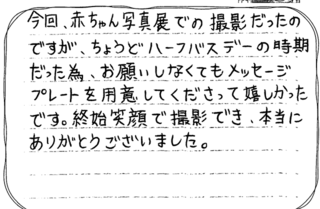 今回、赤ちゃん写真展での撮影だったの
ですが、ちょうどハーフバスデーの時期
だった為、お願いしなくてもメッセージ
プレートを用意してくださって嬉しかった
です。終始笑顔で撮影でき、本当に
ありがとうございました。